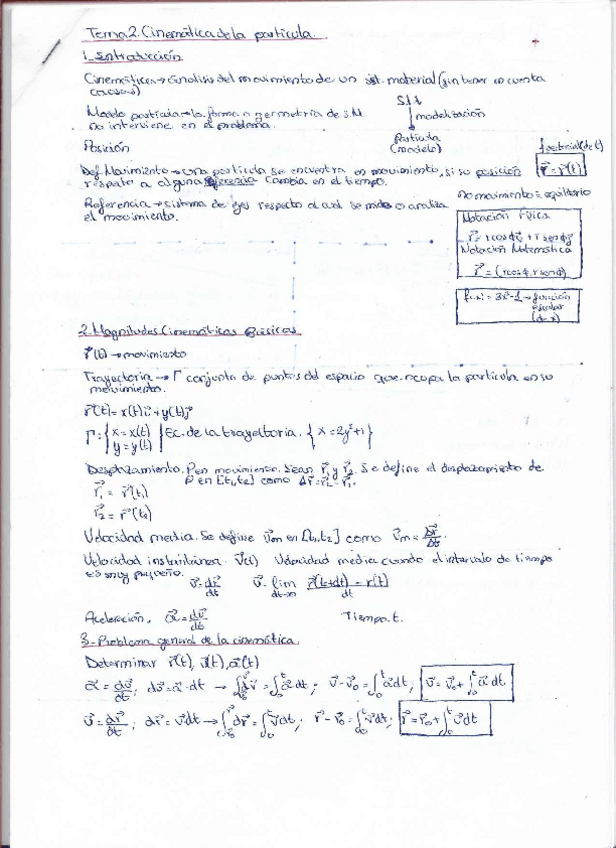 Tema 2. Cinemática de la partícula.
1. Introducción
Cinemática → análisis del movimiento de un sist. material (sin tener en cuenta
causas)
Modelo partícula → la forma o geometría de S.M.
no interviene en el problema.
S.M.
↓ modelización
Partícula
(modelo)
Posición
f vectorial (de t)
r⃗ = r⃗(t)
Def. Movimiento → una partícula se encuentra en movimiento, si su posición
respecto a alguna referencia cambia en el tiempo.
no movimiento = equilibrio
Referencia → sistema de ejes respecto al cual se mide o analiza
el movimiento.
Notación Física
r⃗ = r cosϕ i⃗ + r senϕ j⃗
Notación Matemática
r⃗ = (r cosϕ, r senϕ)
f(x) = 3x²-1 → función
escalar
(de x)
2. Magnitudes Cinemáticas Básicas
r⃗(t) → movimiento
Trayectoria → Γ conjunto de puntos del espacio que ocupa la partícula en su
movimiento.
r⃗(t) = x(t)i⃗ + y(t)j⃗
Γ: { x = x(t) y = y(t) } Ec. de la trayectoria. { x = 2y²+1 }
Desplazamiento. P en movimiento. Sean r⃗₁ y r⃗₂. Se define el desplazamiento de
P en [t₁,t₂] como Δr⃗ = r⃗₂ - r⃗₁.
r⃗₁ = r⃗(t₁)
r⃗₂ = r⃗(t₂)
Velocidad media. Se define v⃗m en [t₁,t₂] como v⃗m = Δr⃗/Δt
Velocidad instantánea. v⃗(t) Velocidad media cuando el intervalo de tiempo
es muy pequeño. v⃗ = dr⃗/dt v⃗ = lim dt→0 r⃗(t+dt) - r⃗(t)/dt
Aceleración. a⃗ = dv⃗/dt Tiempo. t.
3. Problema general de la cinemática.
Determinar r⃗(t), v⃗(t), a⃗(t)
a⃗ = dv⃗/dt; dv⃗ = a⃗·dt → ∫dv⃗ = ∫₀ᵗ a⃗dt; v⃗-v⃗₀ = ∫₀ᵗ a⃗dt; v⃗ = v⃗₀ + ∫₀ᵗ a⃗ dt
v⃗ = dr⃗/dt; dr⃗ = v⃗dt → ∫dr⃗ = ∫₀ᵗ v⃗dt; r⃗-r⃗₀ = ∫₀ᵗ v⃗dt; r⃗ = r⃗₀ + ∫₀ᵗ v⃗dt